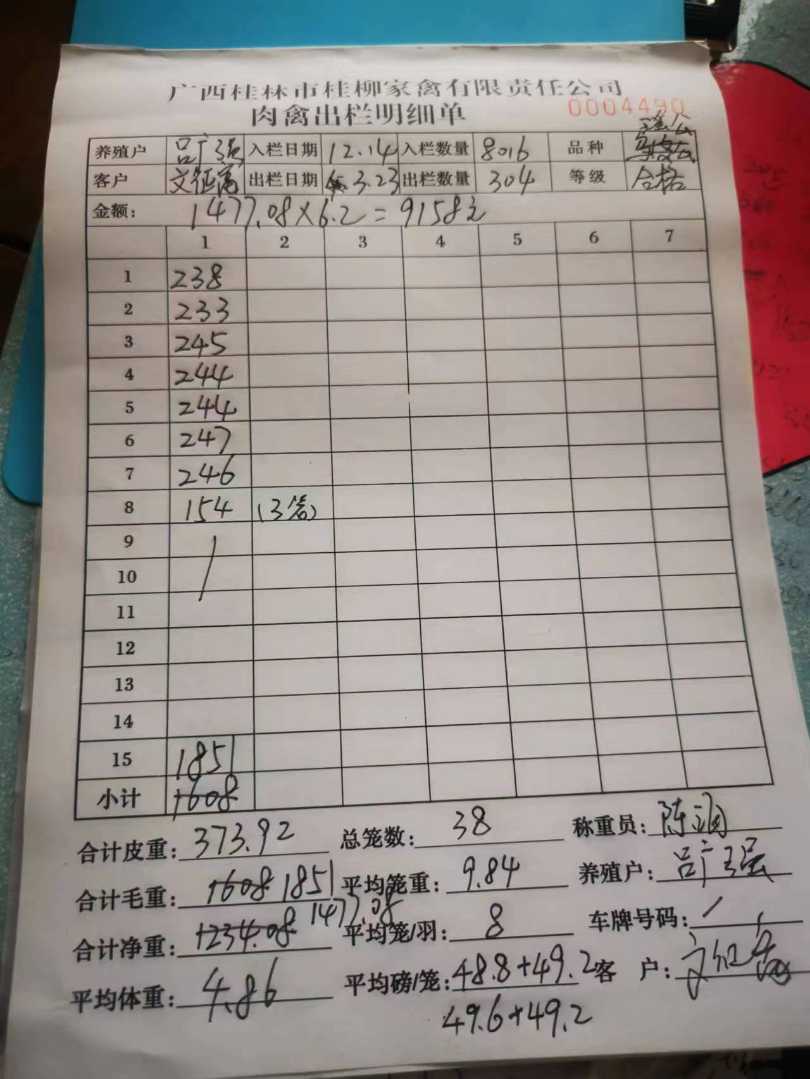 广西桂林市桂柳家禽有限责任公司
肉禽出栏明细单 0004490
养殖户 吕广强 入栏日期 12.14 入栏数量 8016 品种
客户 出栏日期 3.23 出栏数量 304 等级 合格
金额: 1477.08×6.2=9158元
1 2 3 4 5 6 7
1 238
2 233
3 245
4 244
5 244
6 247
7 246
8 154 (3笼)
9
10
11
12
13
14
15 1851
小计 1608
合计皮重: 373.92 总笼数: 38 称重员:
合计毛重: 1608 1851 平均笼重: 9.84 养殖户: 吕广强
合计净重: 1234.08 1477.08 平均笼/羽: 8 车牌号码: /
平均体重: 4.86 平均磅/笼: 48.8+49.2 客 户:
49.6+49.2